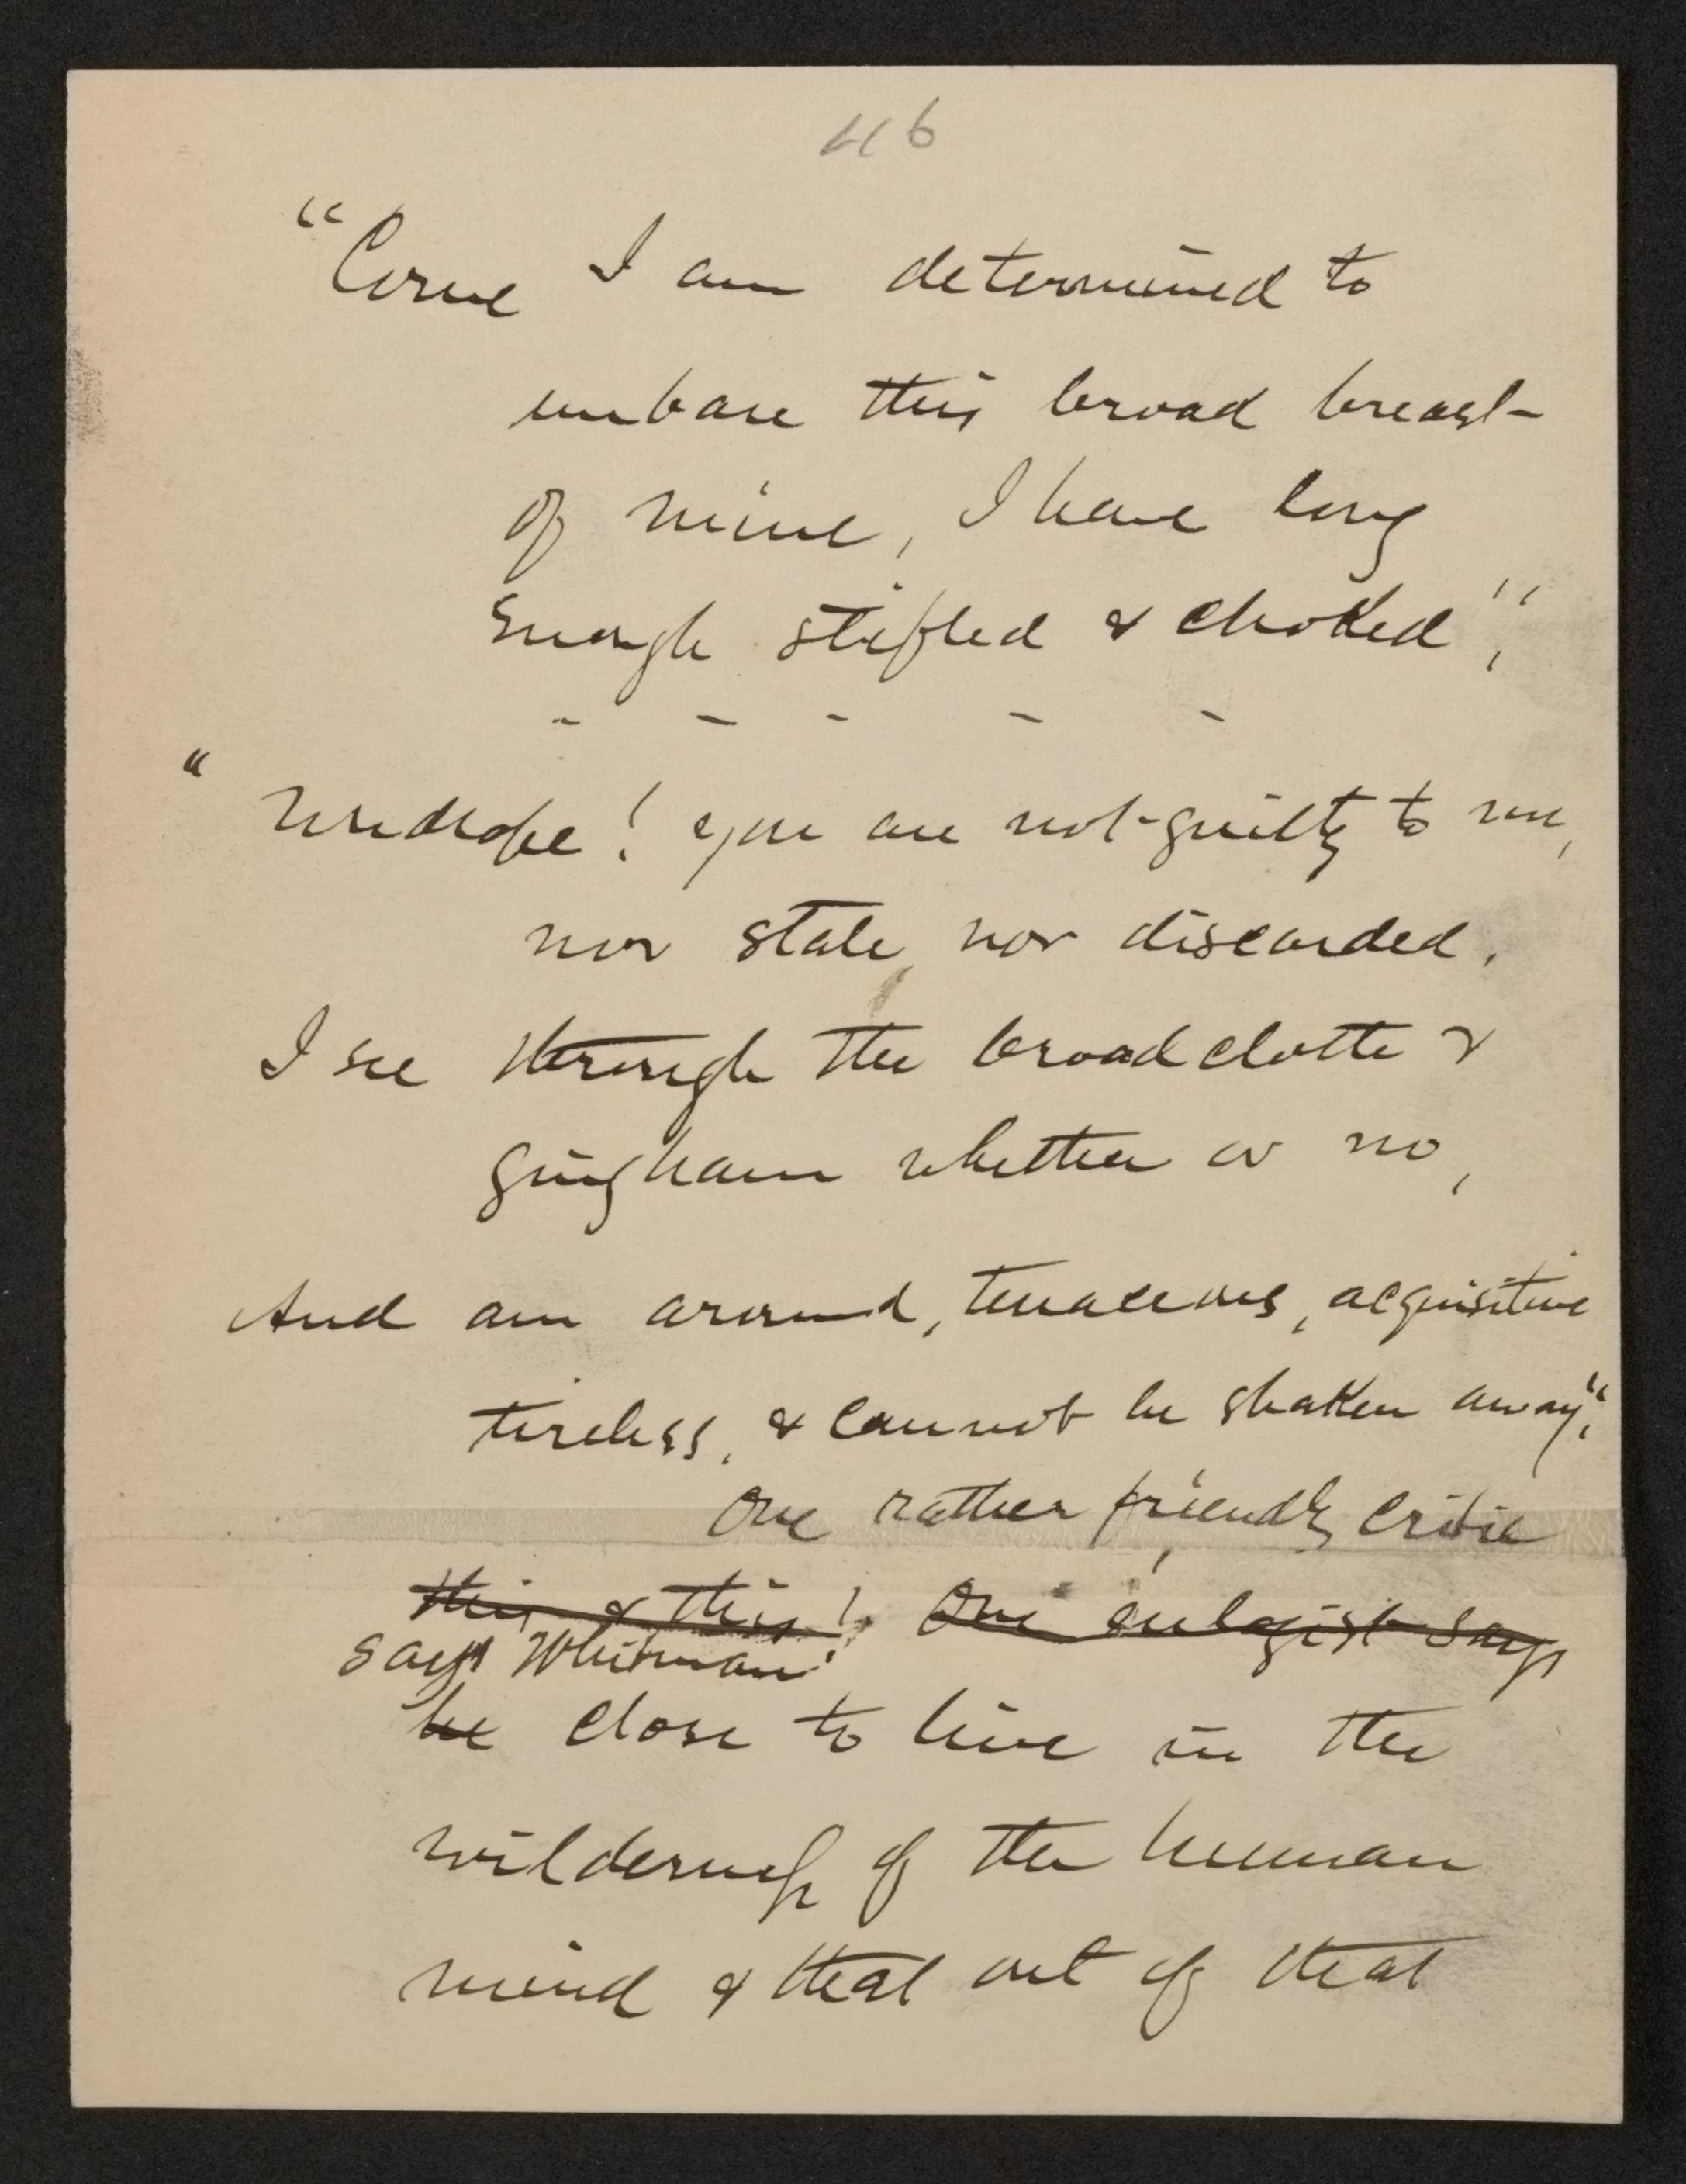 46
"Come I am determined to
unbare this broad breast
of mine, I have long
enough stifled & choked",
- - - - -
" Undrape! you are not guilty to me,
nor stale nor discarded,
I see through the broadcloth &
gingham whether or no,
And am around, tenacious, acquisitive
tireless, & cannot be shaken away."
One rather friendly critic
this & this! One eulogist says
says Whitman
he chose to live in the
wilderness of the human
mind & that out of that